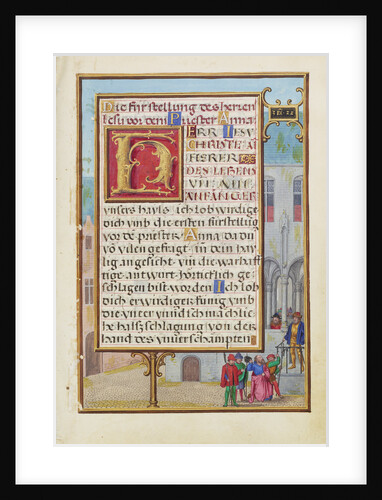 Die für stellung des herren
Iesu vor dem Priester Anna
HERR IESU
CHRISTE A
DES LEBENS
VN̄ AIN
ANFÄNGER
unsers hayls ich lob wirdige
dich vmb die ersten fürstellung
vor dē priester Anna da dū
vō vilen gefragt in dein hay
lig angesicht vm̄ die warhaff
tige antwurt hörticlich ge
schlagen bist worden Ich lob
dich erwirdiger kunig vmb
die vnter
liche halszschlagung von der
hand des vnuerschampten